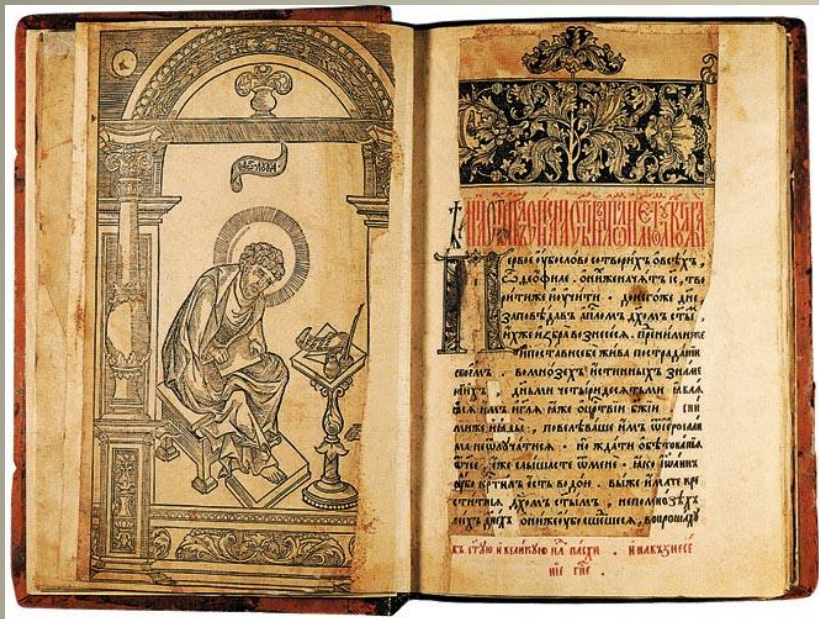 лꙋка
Первое ᲂу҆бо слово сотворихъ ѡ всѣхъ,
ѽ деѻфиле . ѡ нихже начатъ і҃с, тво
рити же и҆ ᲂу҆чити . до него же дн҃е
заповѣдавъ а҆пⷭ҇ломъ дх҃омъ ст҃ы ,
и҆хже и҆збра вознесесѧ . пред ними же
и҆ постави себе жива по страданїи
своемъ . во мнозѣхъ и҆стинныхъ знаме
нїихъ , дньми четыридесѧтьми ꙗ҆влѧ
ѧсѧ и҆мъ и҆ глаголѧ ꙗ҆же ѡ҆ црⷭ҇твїи бж҃їи . с ни
ми же и҆ ꙗ҆ды , повелѣваше и҆мъ ѿ і҆єросали
ма не ѿлꙋчатисѧ . но ждати ѡ҆бѣтованїѧ
ѻ҆ч҃ее , є҆же слышасте ѿ мене . ꙗ҆ко і҆ѡ҆аннъ
ᲂу҆бо крⷭ҇тилъ є҆сть водою . вы же и҆мате кре
ститисѧ дх҃омъ ст҃ымъ , не по мнозѣхъ
сихъ дн҃ехъ ѻ҆ни же ᲂу҆бо сшедшесѧ , вопрошахꙋ
въ ст҃ꙋю и҆ великꙋю нⷧ҇ѧ пасхи . и҆ на възнесе
нїе гн҃е .